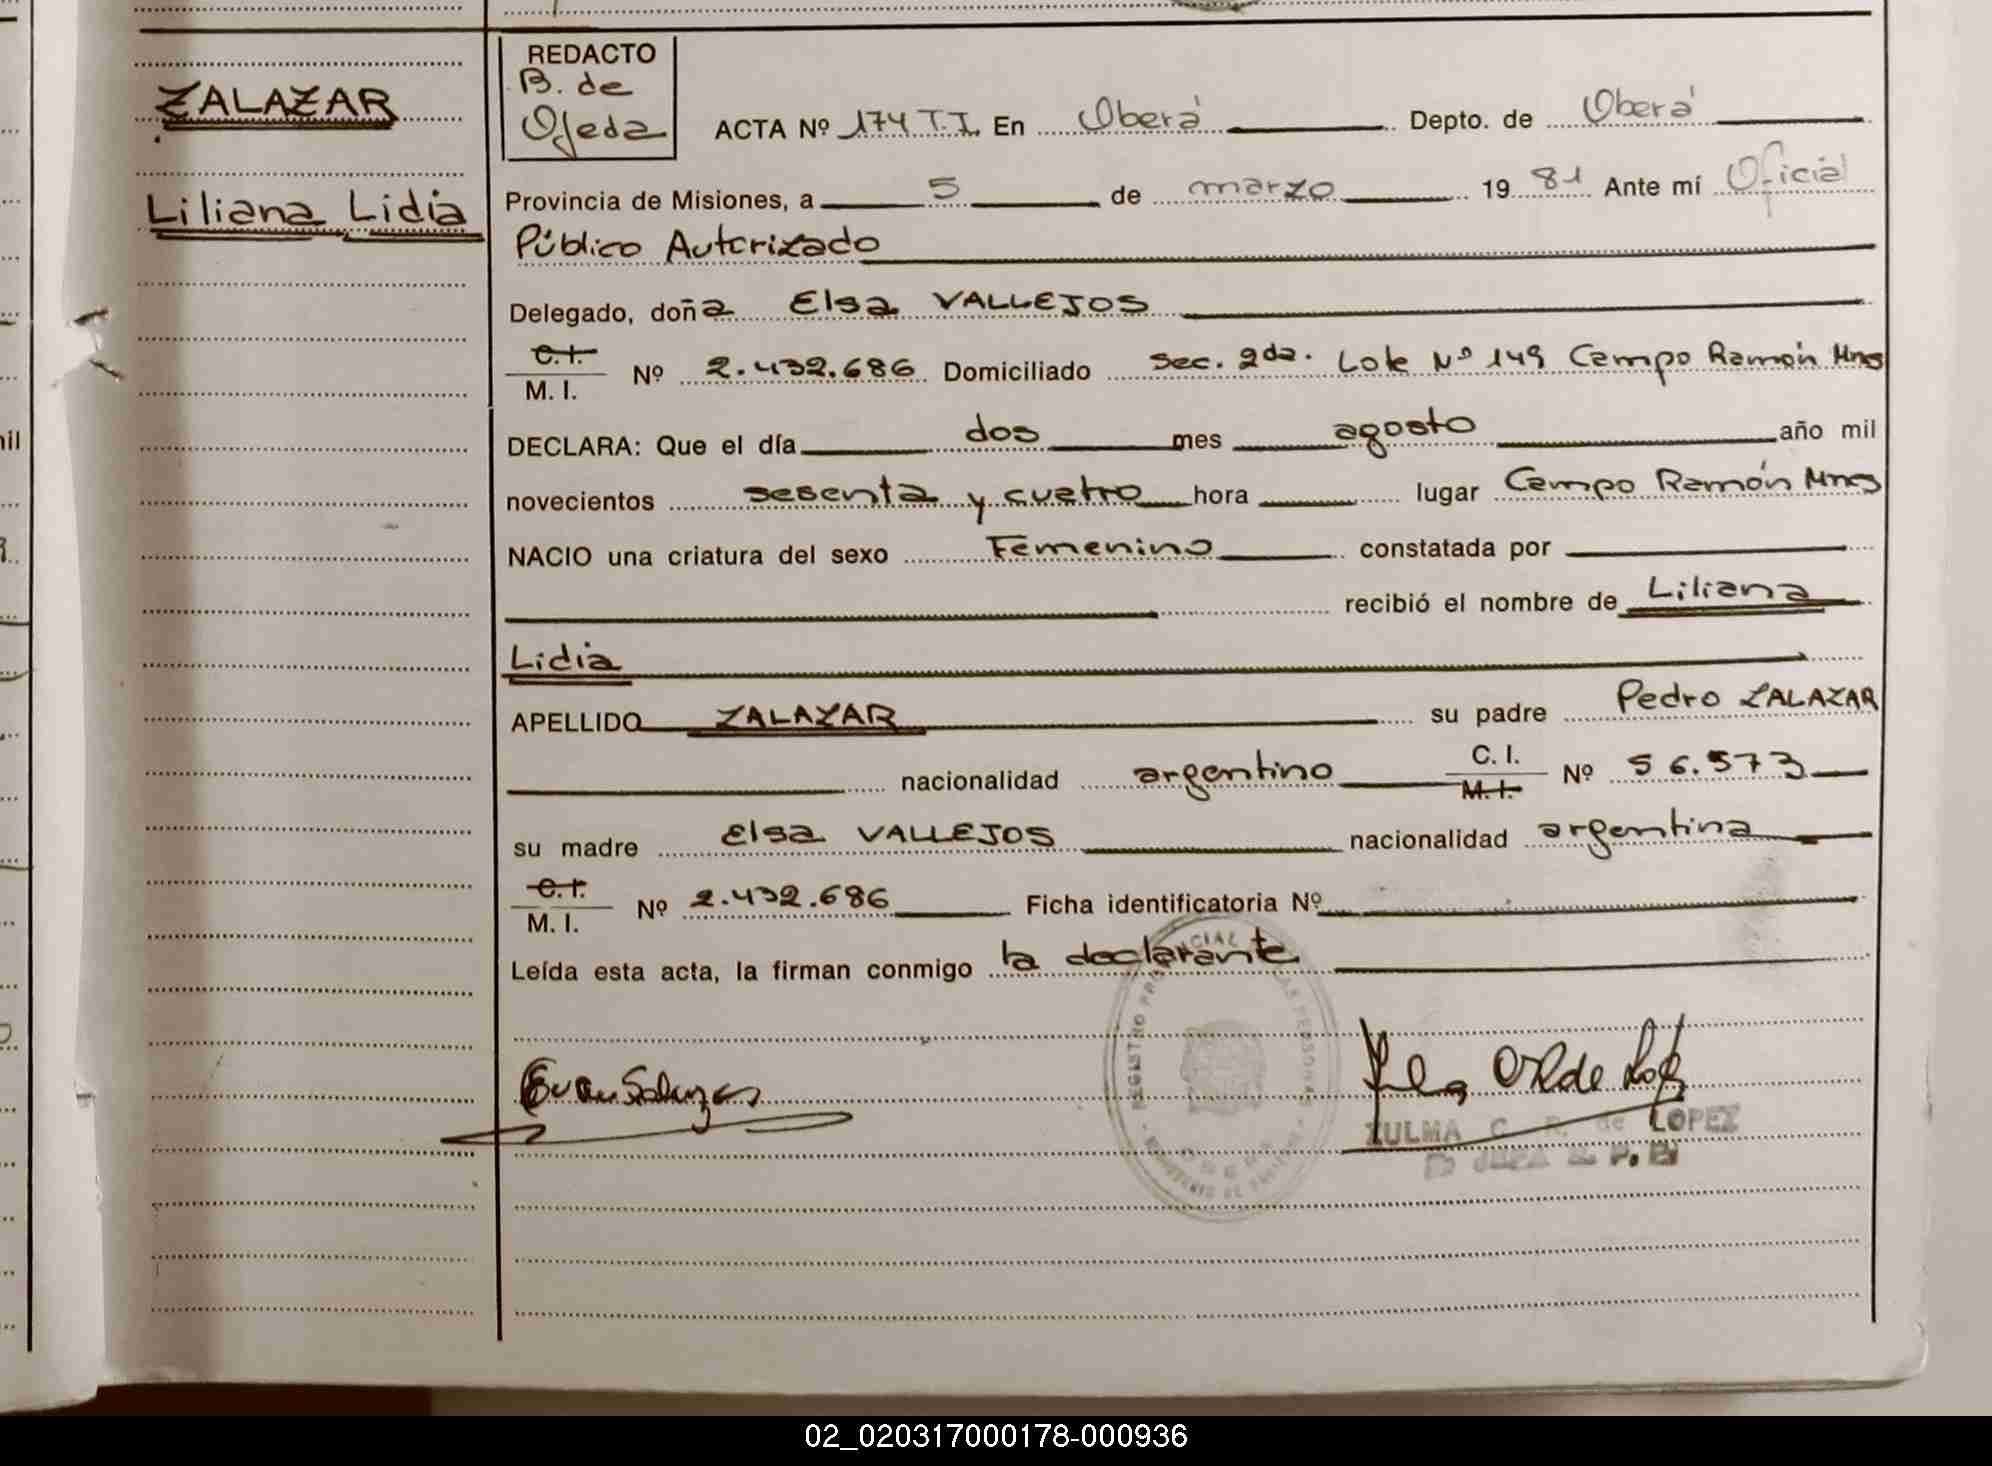 ZALAZAR
Liliana Lidia
REDACTO
B. de
Ojeda
ACTA Nº 174 T.I. En Oberá Depto. de Oberá
Provincia de Misiones, a 5 de marzo 19 81 Ante mí Oficial
Público Autorizado
Delegado, doña Elsa VALLEJOS
C.I.
M. I. Nº 2.432.686 Domiciliado Sec. 2da. Lote Nº 149 Campo Ramón Mnes
DECLARA: Que el día dos mes agosto año mil
novecientos sesenta y cuatro hora lugar Campo Ramón Mnes
NACIO una criatura del sexo Femenino constatada por
recibió el nombre de Liliana
Lidia
APELLIDO ZALAZAR su padre Pedro ZALAZAR
nacionalidad argentino C. I. Nº 56.573
M. I.
su madre Elsa VALLEJOS nacionalidad argentina
C.I.
M. I. Nº 2.432.686 Ficha identificatoria Nº
Leída esta acta, la firman conmigo la declarante
ZULMA C. R. de LOPEZ
02_020317000178-000936